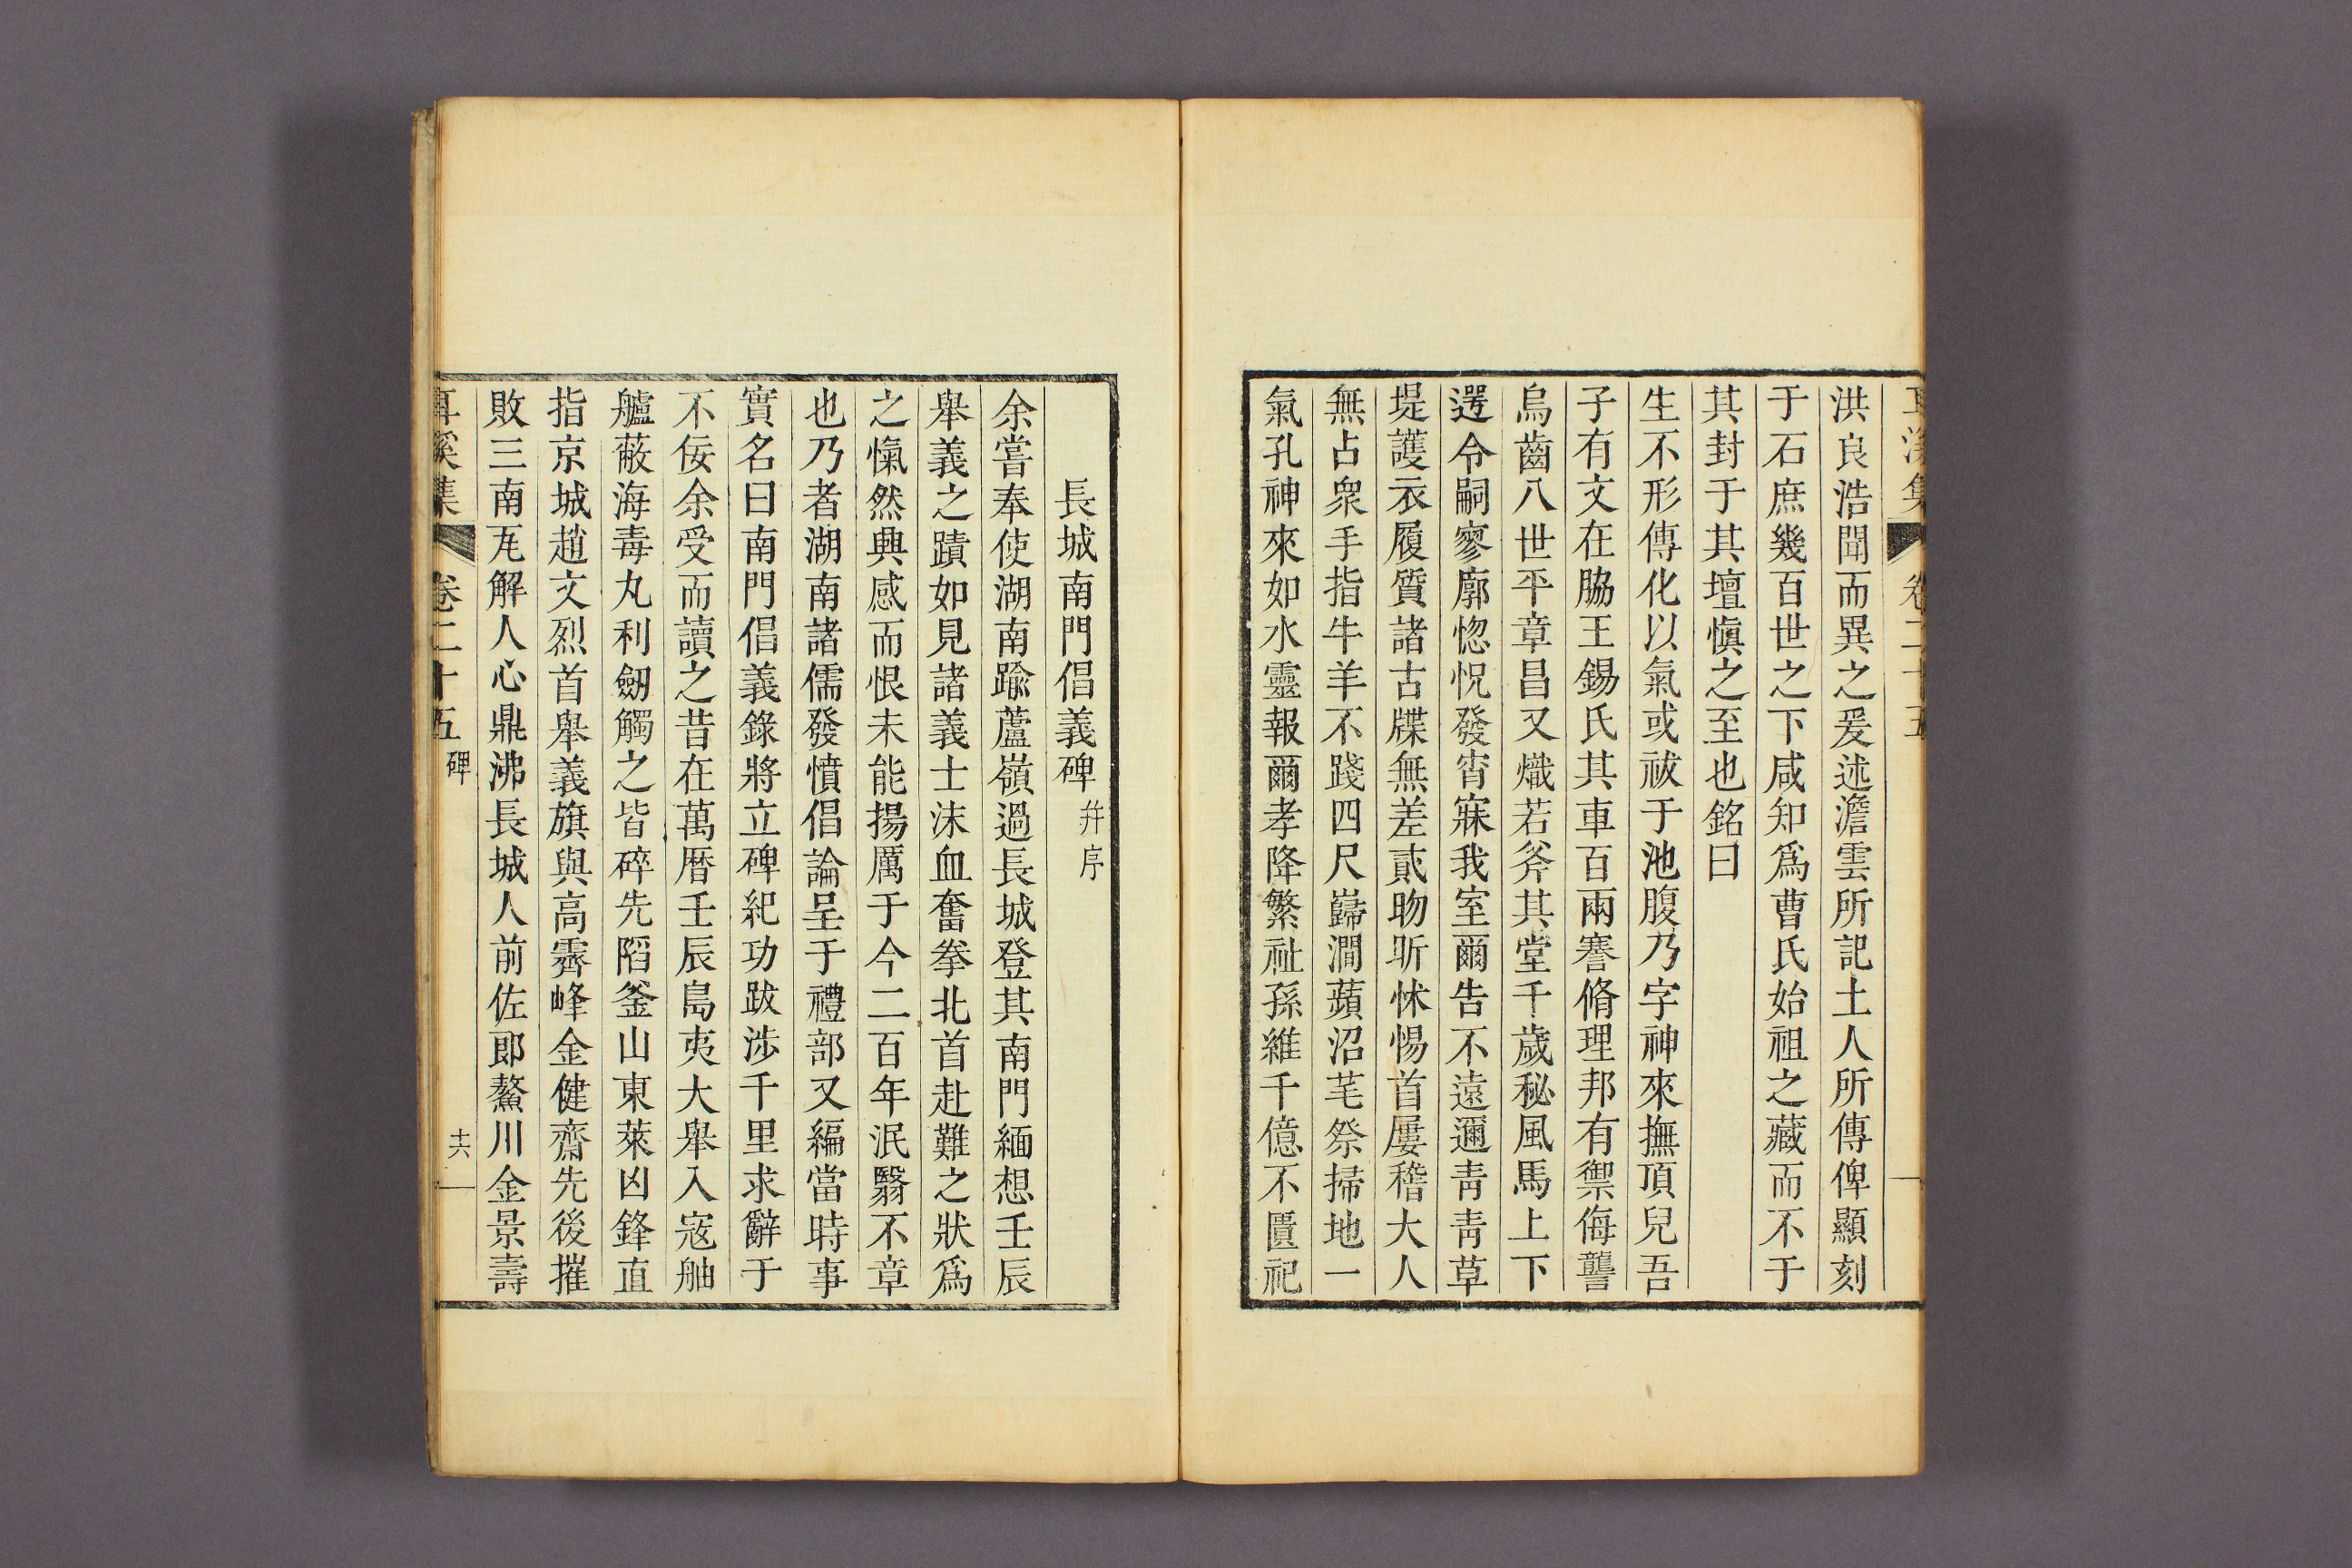 耳溪集 卷二十五
洪良浩聞而異之爰述澹雲所記土人所傳俾顯刻
于石庶幾百世之下咸知爲曹氏始祖之藏而不于
其封于其壇愼之至也銘曰
生不形傳化以氣或祓于池腹乃字神來撫頂兒吾
子有文在脇王錫氏其車百兩謇脩理邦有禦侮讋
烏齒八世平章昌又熾若斧其堂千歲秘風馬上下
遌令嗣寥廓惚怳發宵寐我室爾告不遠邇靑靑草
堤護衣履質諸古牒無差貳昒昕怵惕首屢稽大人
無占衆手指牛羊不踐四尺巋澗蘋沼芼祭掃地一
氣孔神來如水靈報爾孝降繁祉孫維千億不匱祀
長城南門倡義碑 幷序
余嘗奉使湖南踰蘆嶺過長城登其南門緬想壬辰
舉義之蹟如見諸義士沬血奮拳北首赴難之狀爲
之愾然興感而恨未能揚厲于今二百年泯翳不章
也乃者湖南諸儒發憤倡論呈于禮部又編當時事
實名曰南門倡義錄將立碑紀功跋涉千里求辭于
不佞余受而讀之昔在萬曆壬辰島夷大舉入寇舳
艫蔽海毒丸利劒觸之皆碎先陷釜山東萊凶鋒直
指京城趙文烈首舉義旗與高霽峰金健齋先後摧
敗三南瓦解人心鼎沸長城人前佐郞鰲川金景壽
耳溪集 卷二十五 碑 十六